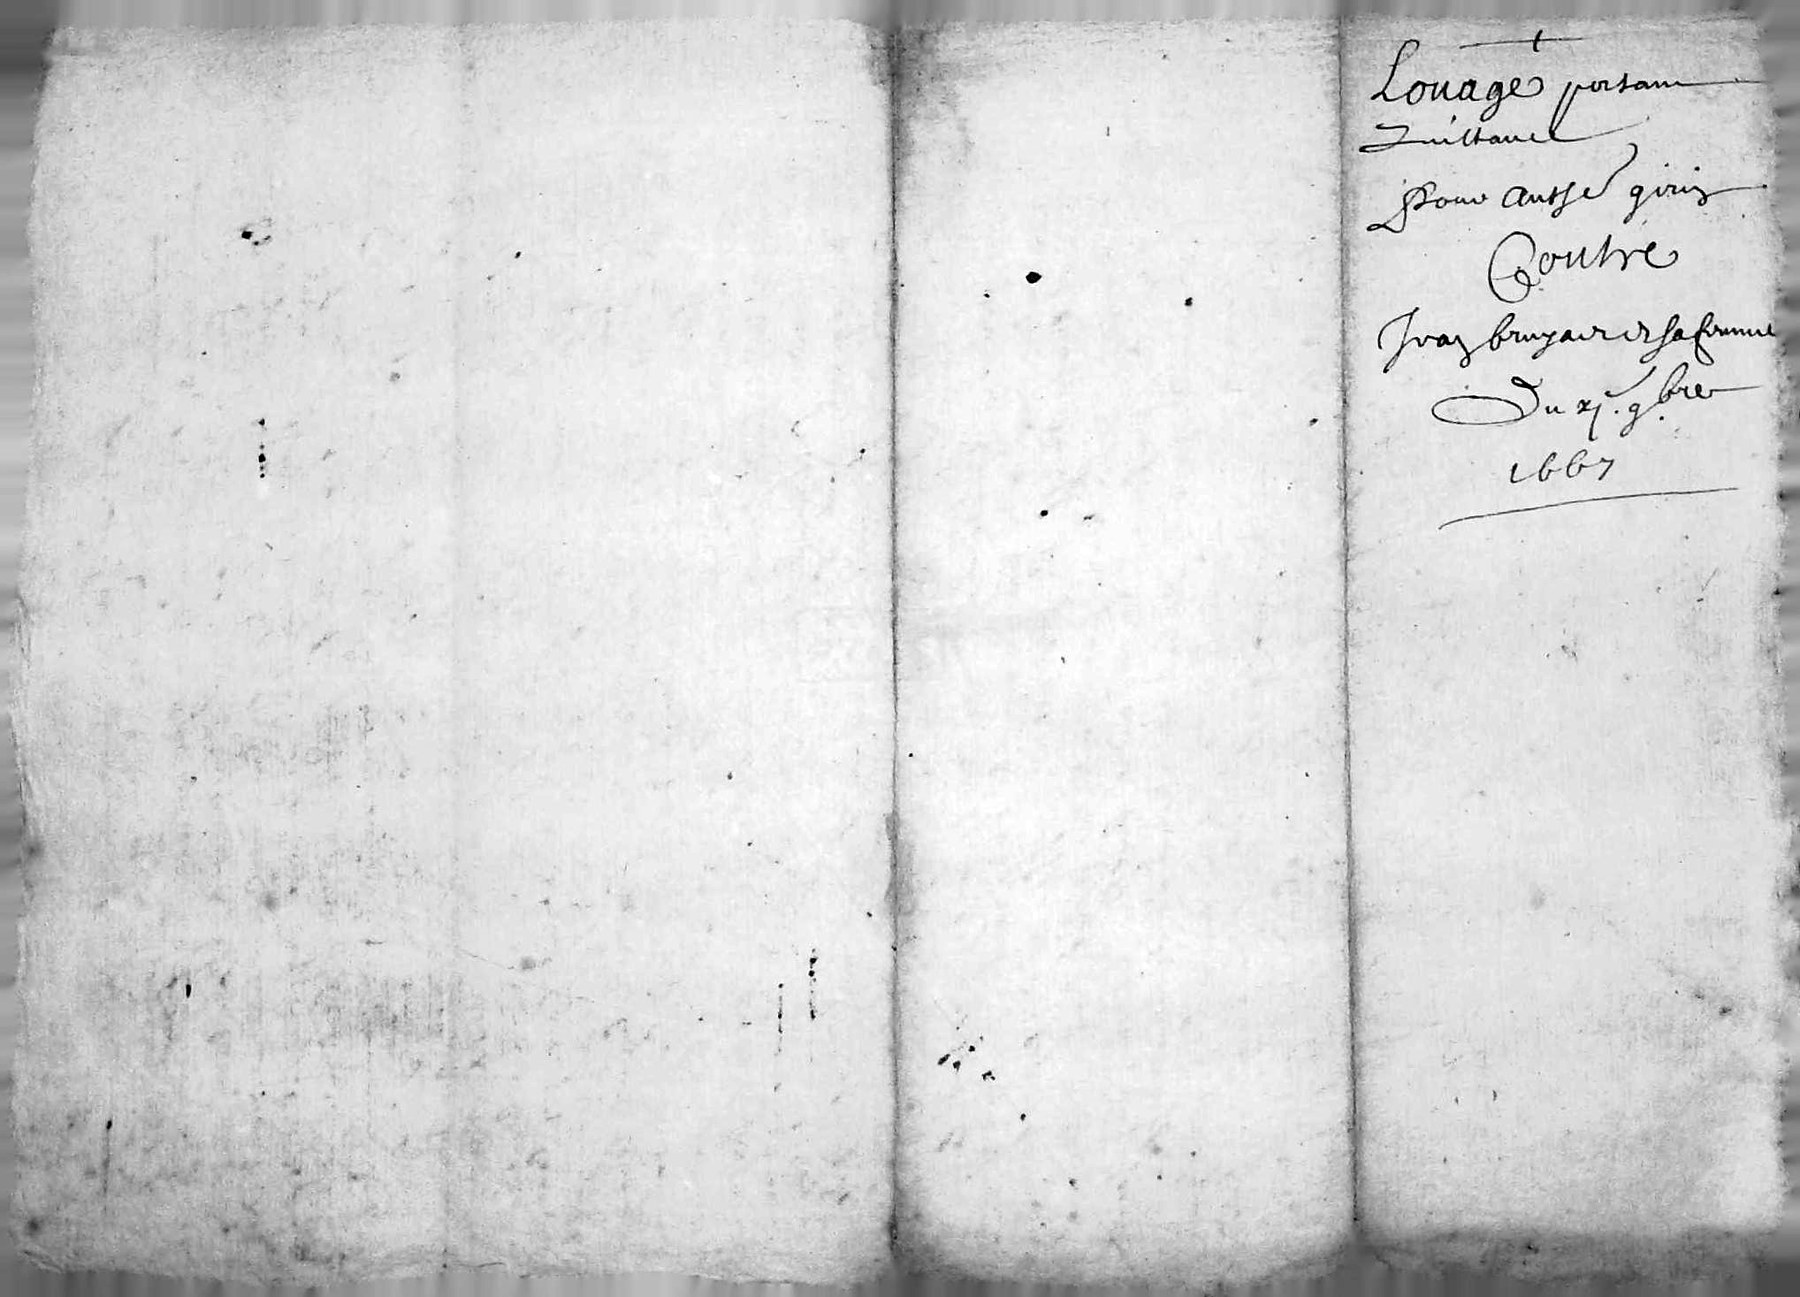 Louage portant
quittance
Pour Anthe girin
Contre
Jean bruyere et sa femme
Du xj. 9bre
1667